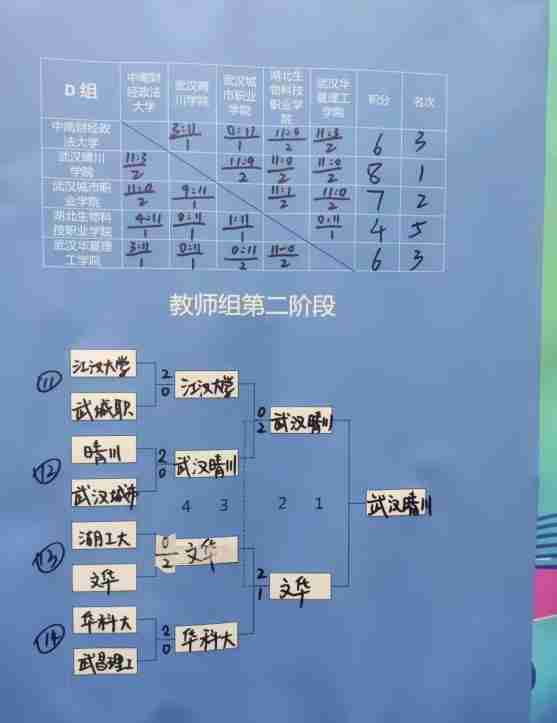 D组 中南财经政法大学 武汉晴川学院 武汉城市职业学院 湖北生物科技职业学院 武汉华夏理工学院 积分 名次
中南财经政法大学 3:11/1 0:11/1 11:0/2 11:3/2 6 3
武汉晴川学院 11:3/2 11:9/2 11:0/2 11:0/2 8 1
武汉城市职业学院 11:0/2 9:11/1 11:1/2 11:0/2 7 2
湖北生物科技职业学院 0:11/1 1:11/1 0:11/1 4 5
武汉华夏理工学院 3:11/1 0:11/1 0:11/2 11-0/2 6 3
教师组第二阶段
11 江汉大学 2 江汉大学
武城职 0
0 武汉晴川
2
12 晴川 2 武汉晴川
武汉城市 0
4 3 2 1 武汉晴川
13 湖工大 0 文华
文华 2
2 文华
1
14 华科大 2 华科大
武昌理工 0